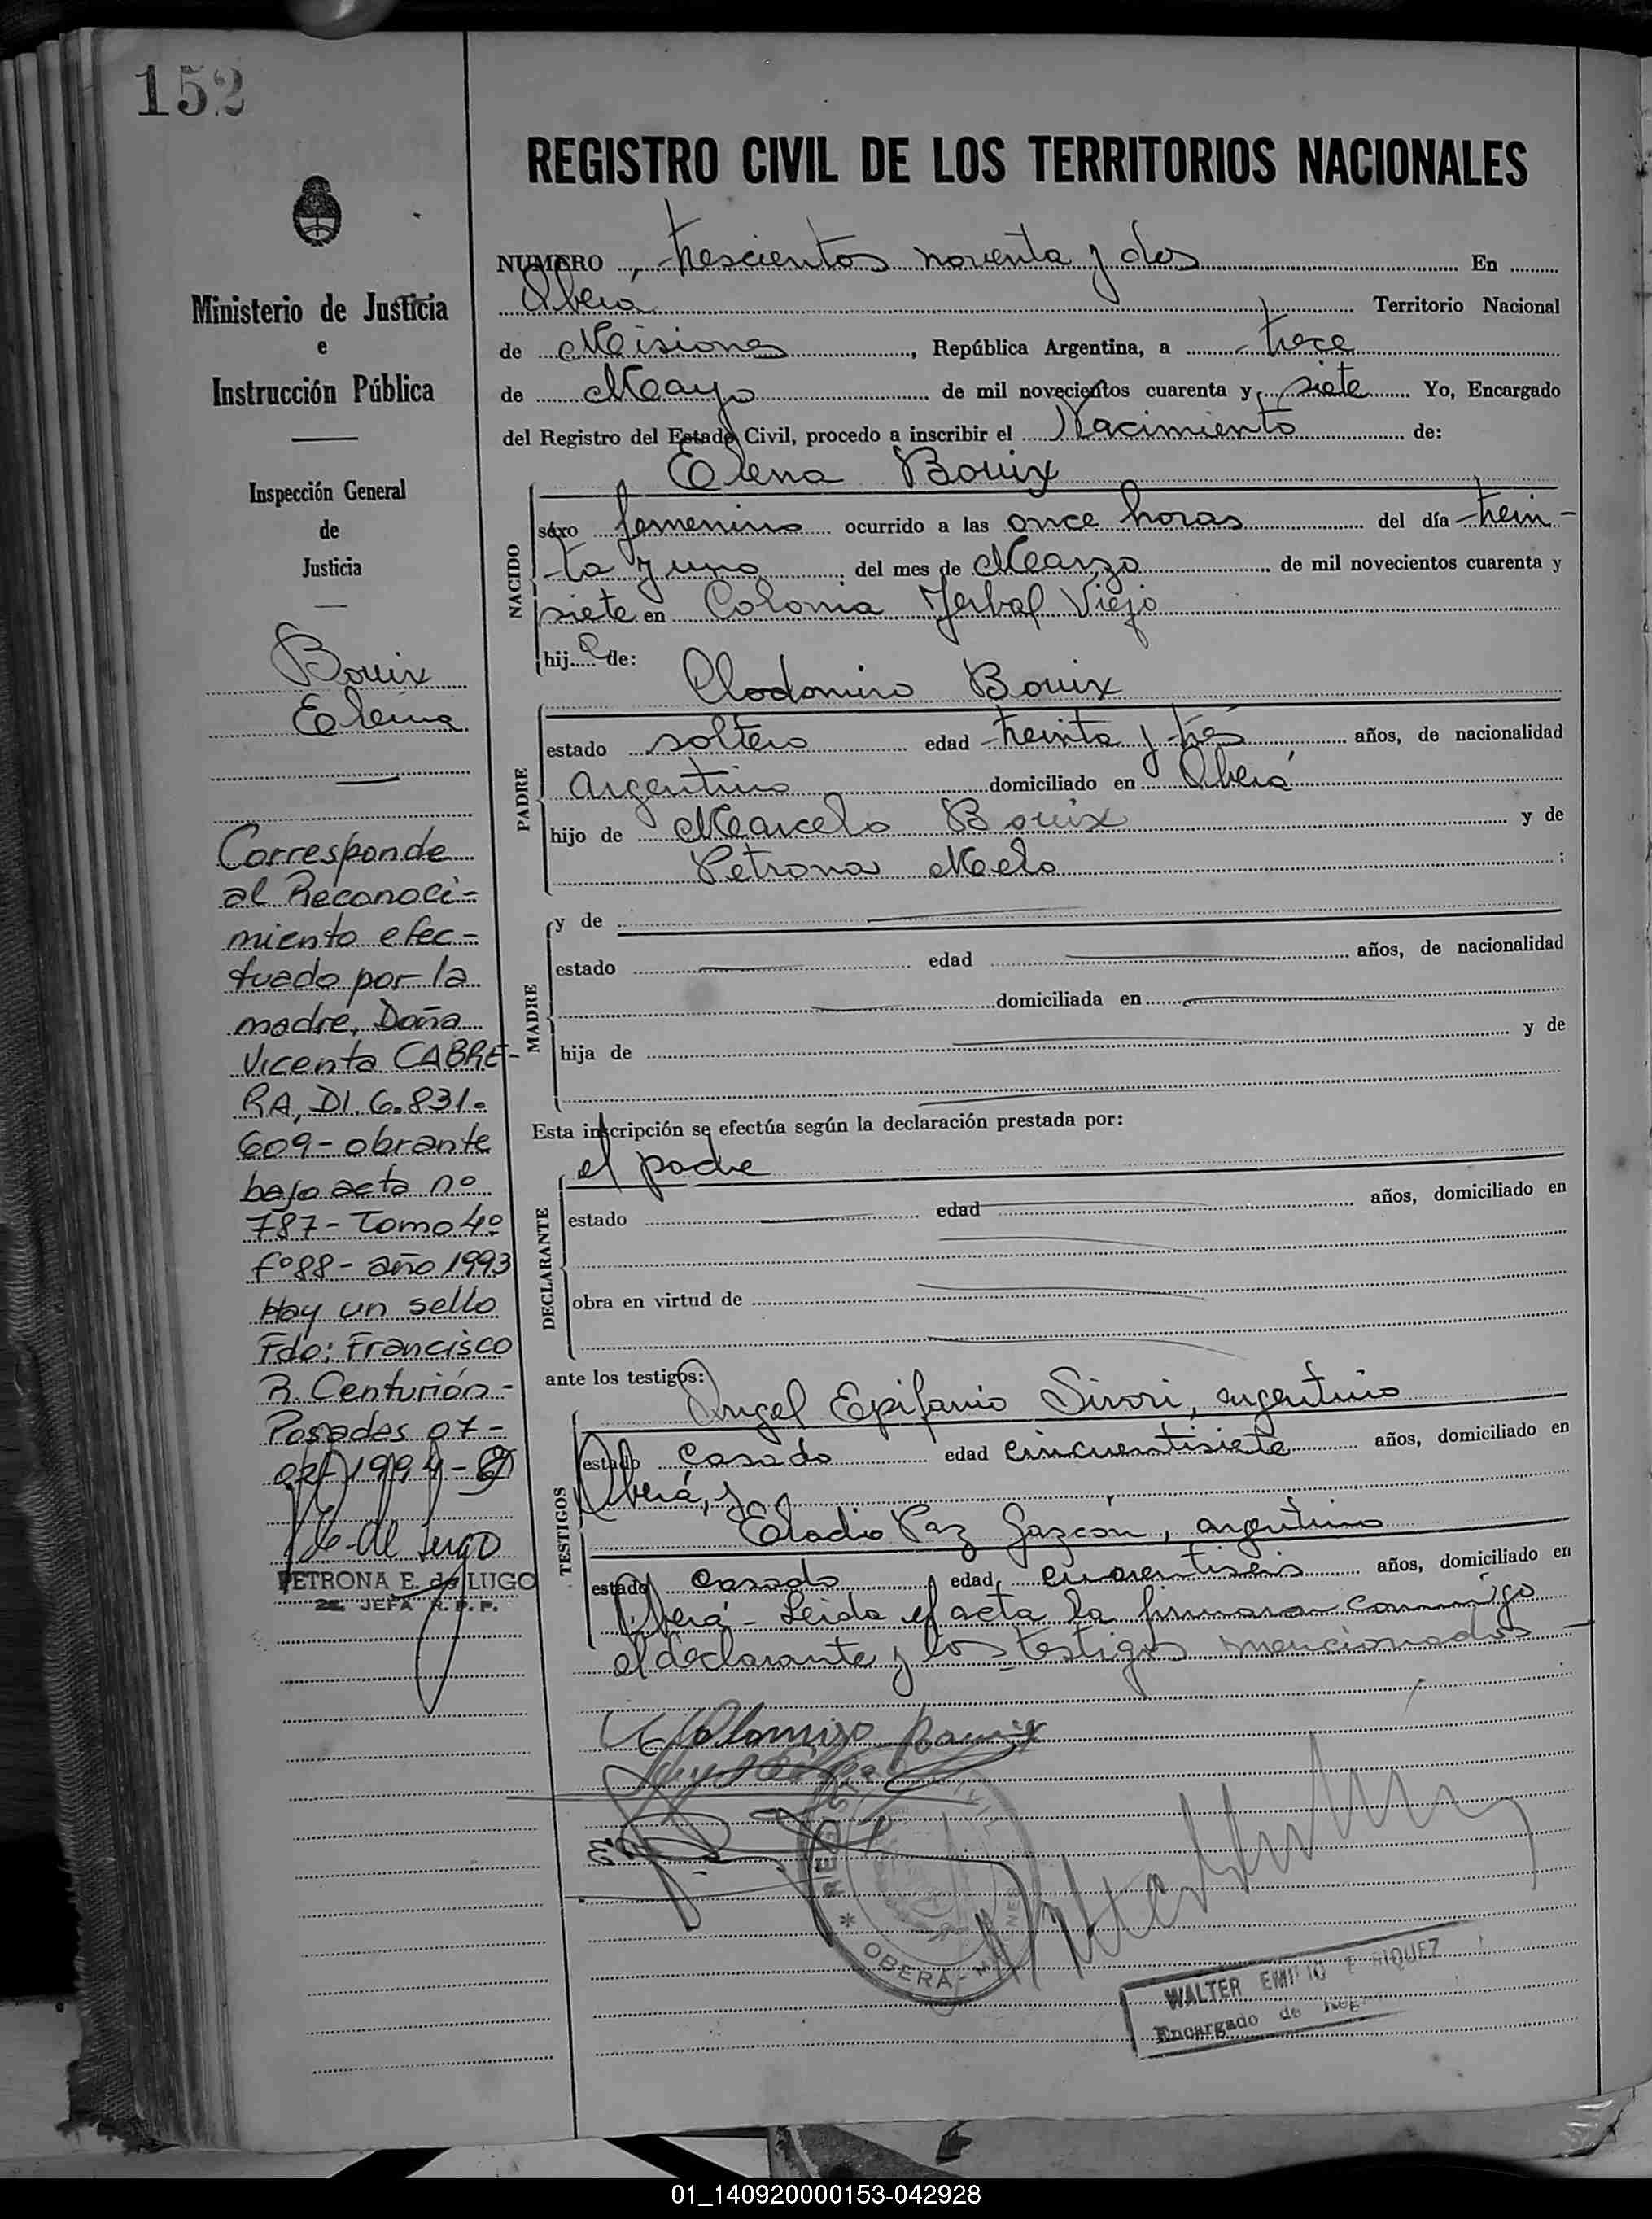 152
Ministerio de Justicia
e
Instrucción Pública
Inspección General
de
Justicia
Bouix
Elena
Corresponde
al Reconoci-
miento efec-
tuado por la
madre, Doña
Vicenta CABRE-
RA, DI. 6.831.
609- obrante
bajo acta nº
787- Tomo 4º
fº 88- año 1993
Hay un sello
Fdo: Francisco
R. Centurión-
Posadas 07-
1994-
de Lugo
PETRONA E. de LUGO
JEFA R. P. P.
REGISTRO CIVIL DE LOS TERRITORIOS NACIONALES
NUMERO trescientos noventa y dos En
Oberá Territorio Nacional
de Misiones, República Argentina, a trece
de Mayo de mil novecientos cuarenta y siete Yo, Encargado
del Registro del Estado Civil, procedo a inscribir el Nacimiento de:
Elena Bouix
NACIDO
sexo femenino ocurrido a las once horas del día trein-
ta y uno del mes de Marzo de mil novecientos cuarenta y
siete en Colonia Yerbal Viejo
hija de:
Clodomiro Bouix
PADRE
estado soltero edad treinta y tres años, de nacionalidad
argentino domiciliado en Oberá
hijo de Marcelo Bouix y de
Petrona Melo ;
MADRE
y de
estado edad años, de nacionalidad
domiciliada en
hija de y de
Esta inscripción se efectúa según la declaración prestada por:
el padre
DECLARANTE
estado edad años, domiciliado en
obra en virtud de
ante los testigos:
Angel Epifanio Sivori, argentino
TESTIGOS
estado casado edad cincuentisiete años, domiciliado en
Oberá, y
Eladio Paz Gazcón, argentino
estado casado edad cuarentiseis años, domiciliado en
Oberá - Leida el acta la firmaron conmigo
el declarante y los testigos mencionados
REGISTRO CIVIL
OBERÁ
WALTER EMILIO
Encargado de
01_140920000153-042928